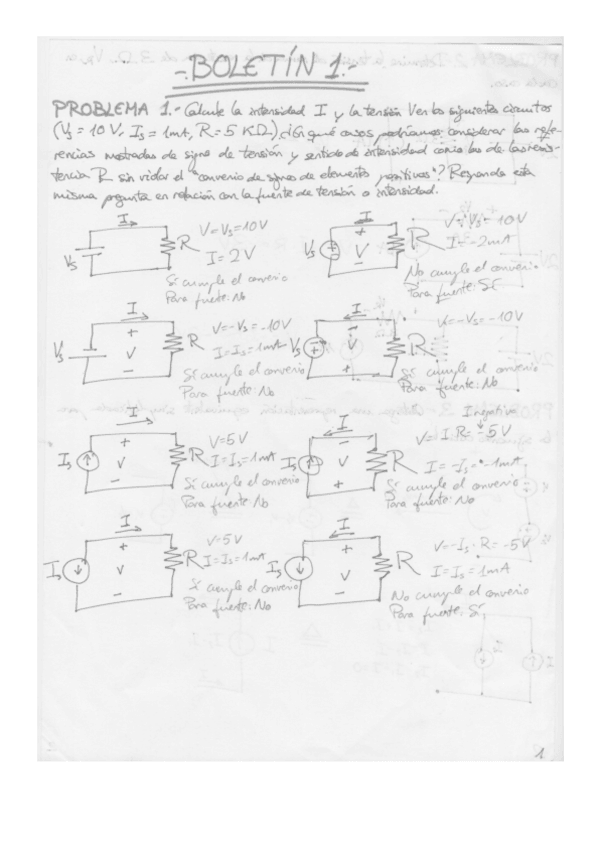 -.BOLETÍN 1.-
PROBLEMA 1.- Calcule la intensidad I y la tensión V en los siguientes circuitos
(Vs = 10 V, Is = 1mA, R = 5 KΩ). ¿En qué casos podríamos considerar las refe-
rencias mostradas de signo de tensión y sentido de intensidad como las de la resis-
tencia R sin violar el "convenio de signos de elementos pasivos"? Responda esta
misma pregunta en relación con la fuente de tensión o intensidad.
I
Vs
R
V=Vs=10V
I=2V
Sí cumple el convenio
Para fuente: No
I
Vs
+
V
-
R
Vs=10V
I=-2mA
No cumple el convenio
Para fuente: Sí
I
Vs
+
V
-
R
V=-Vs=-10V
I=Is=1mA
Sí cumple el convenio
Para fuente: No
I
Vs
-
V
+
R
V=-Vs=-10V
Sí cumple el convenio
Para fuente: No
I
Is
+
V
-
R
V=5V
I=Is=1mA
Sí cumple el convenio
Para fuente No
I
Is
-
V
+
R
I negativa
V=I·R=-5V
I=-Is=-1mA
Sí cumple el convenio
Para fuente: No
I
Is
+
V
-
R
V=5V
I=Is=1mA
Sí cumple el convenio
Para fuente: No
I
Is
+
V
-
R
V=-Is·R=-5V
I=Is=1mA
No cumple el convenio
Para fuente: Sí
1